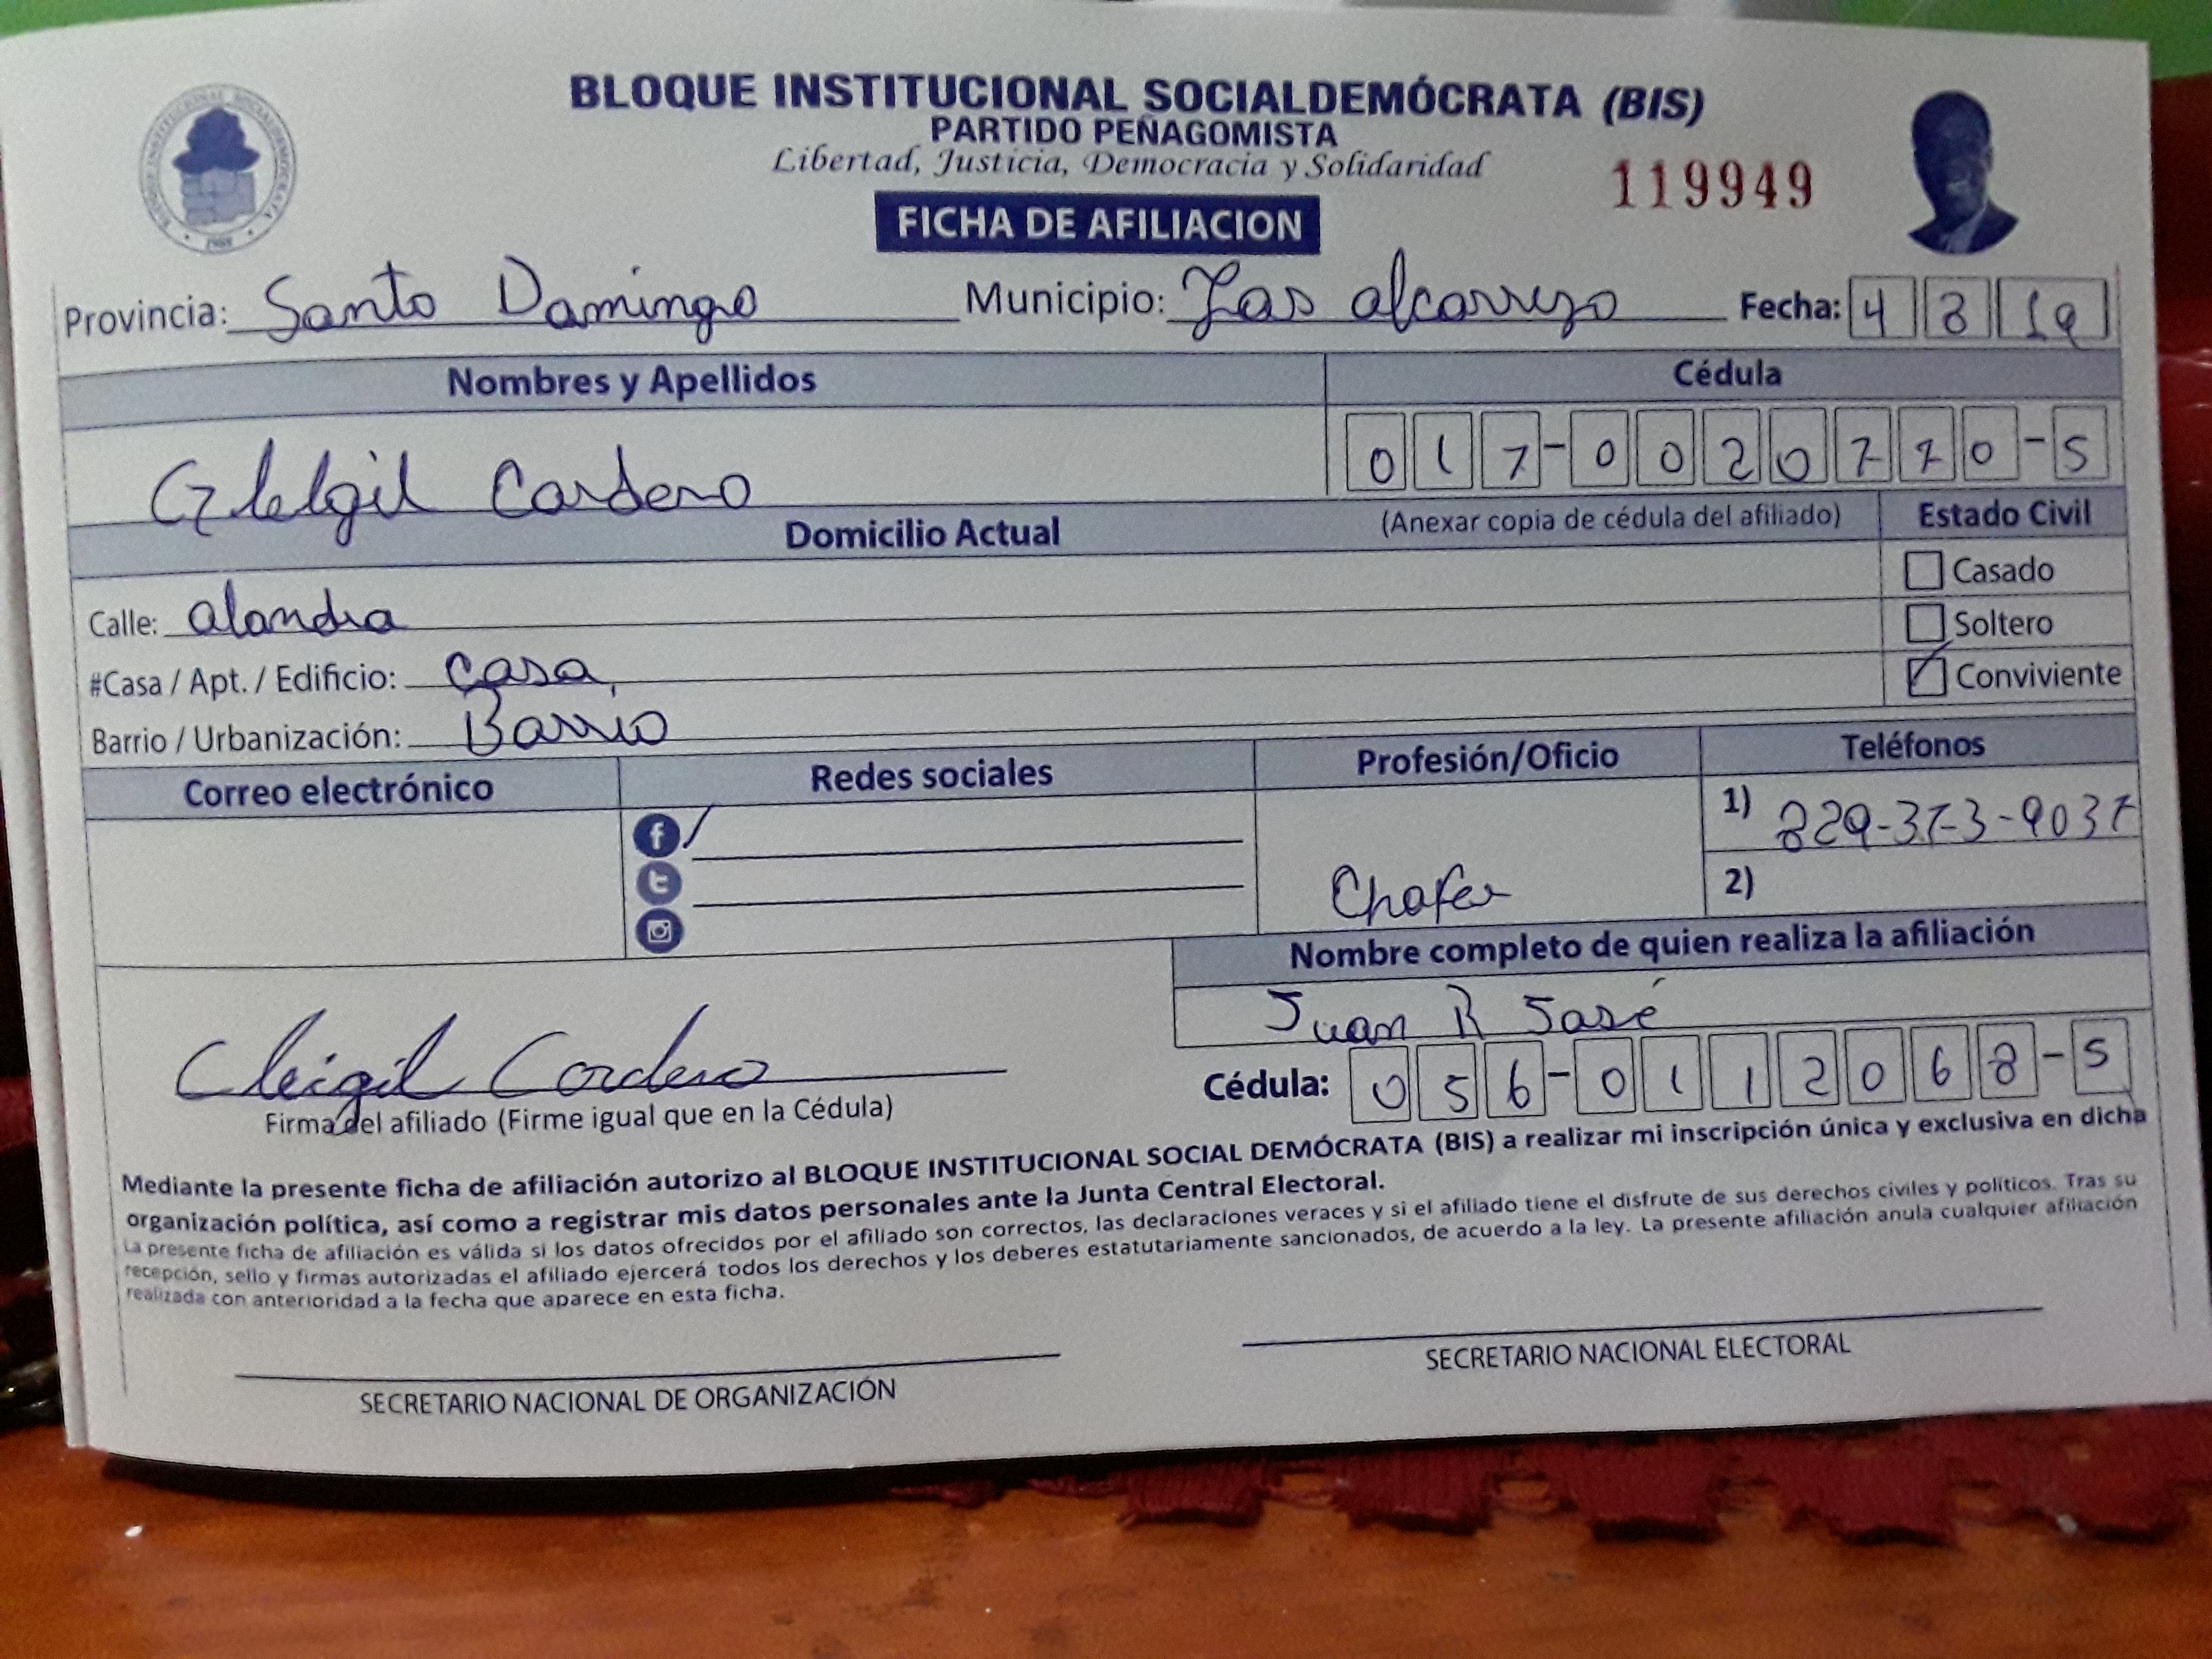 BLOQUE INSTITUCIONAL SOCIALDEMÓCRATA (BIS)
PARTIDO PEÑAGOMISTA
Libertad, Justicia, Democracia y Solidaridad
119949
FICHA DE AFILIACION
Provincia: Santo Domingo Municipio: Los alcarrizo Fecha: 4 8 19
Nombres y Apellidos Cédula
Cordero 017-0020770-5
Domicilio Actual (Anexar copia de cédula del afiliado) Estado Civil
Casado
Calle: alondra Soltero
#Casa / Apt. / Edificio: casa, Conviviente
Barrio / Urbanización: Barrio
Correo electrónico Redes sociales Profesión/Oficio Teléfonos
1) 829-373-9037
Chofer 2)
Nombre completo de quien realiza la afiliación
Juan R José
Cleigil Cordero Cédula: 056-0112068-5
Firma del afiliado (Firme igual que en la Cédula)
Mediante la presente ficha de afiliación autorizo al BLOQUE INSTITUCIONAL SOCIAL DEMÓCRATA (BIS) a realizar mi inscripción única y exclusiva en dicha
organización política, así como a registrar mis datos personales ante la Junta Central Electoral.
La presente ficha de afiliación es válida si los datos ofrecidos por el afiliado son correctos, las declaraciones veraces y si el afiliado tiene el disfrute de sus derechos civiles y políticos. Tras su
recepción, sello y firmas autorizadas el afiliado ejercerá todos los derechos y los deberes estatutariamente sancionados, de acuerdo a la ley. La presente afiliación anula cualquier afiliación
realizada con anterioridad a la fecha que aparece en esta ficha.
SECRETARIO NACIONAL DE ORGANIZACIÓN SECRETARIO NACIONAL ELECTORAL